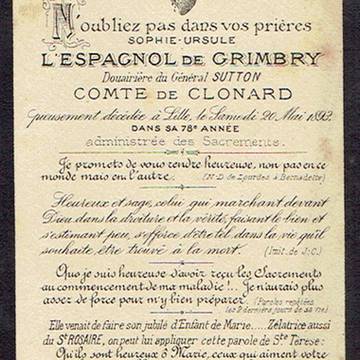 N'oubliez pas dans vos prières
SOPHIE-URSULE
L'ESPAGNOL DE GRIMBRY
Douairière du Général SUTTON
COMTE DE CLONARD
pieusement décédée à Lille, le Samedi 20 Mai 1893
DANS SA 78e ANNÉE
administrée des Sacrements.
Je promets de vous rendre heureuse, non pas en ce
monde mais en l'autre. (N.-D. de Lourdes à Bernadette)
Heureux et sage, celui qui marchant devant
Dieu dans la droiture et la vérité, faisant le bien et
s'estimant peu, s'efforce d'être tel dans la vie qu'il
souhaite être trouvé à la mort. (Imit. de J.-C.)
Que je suis heureuse d'avoir reçu les Sacrements
au commencement de ma maladie!.. Je n'aurais plus
assez de force pour m'y bien préparer. (Paroles répétées
les derniers jours de sa vie)
Elle venait de faire son jubilé d'Enfant de Marie.... Zélatrice aussi
du St ROSAIRE, on peut lui appliquer cette parole de Ste Térèse:
Qu'ils sont heureux ô Marie, ceux qui aiment votre